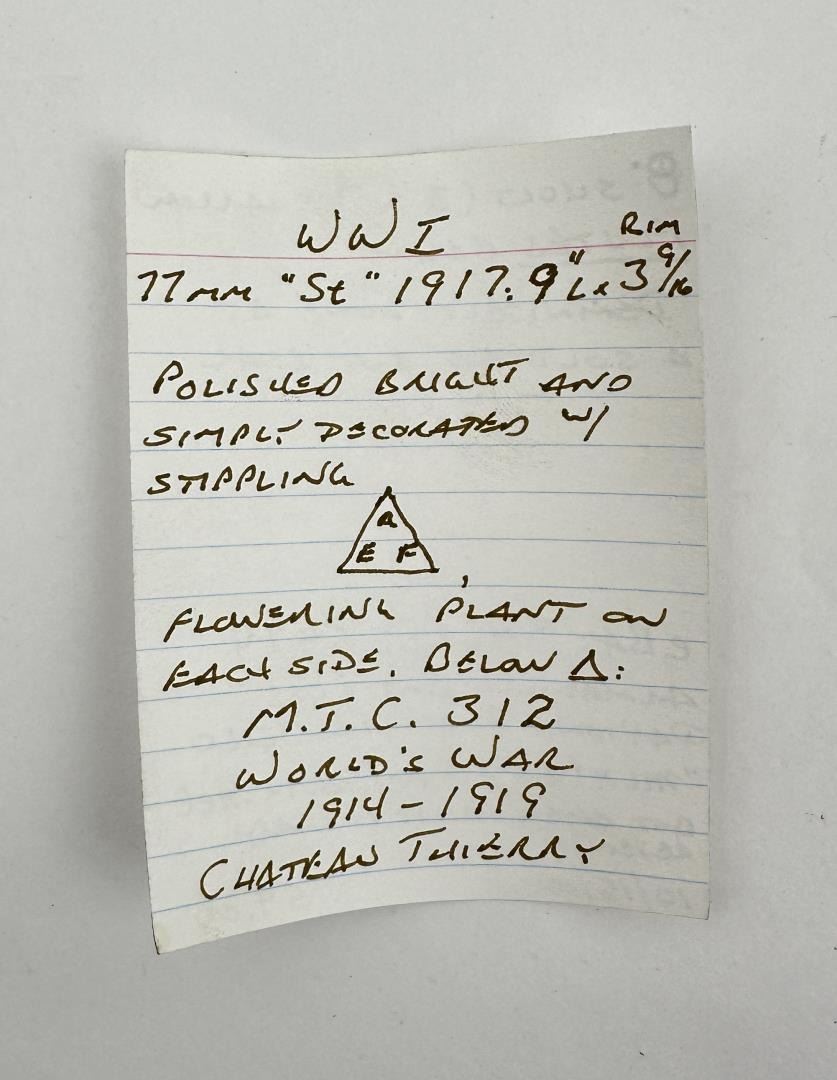 WWI
RIM
77mm "St" 1917. 9"L x 3 9/16
POLISHED BRIGHT AND
SIMPLY DECORATED W/
STIPPLING
A
E F
,
FLOWERING PLANT ON
EACH SIDE. BELOW Δ:
M.T.C. 312
WORLD'S WAR
1914-1919
CHATEAU THIERRY